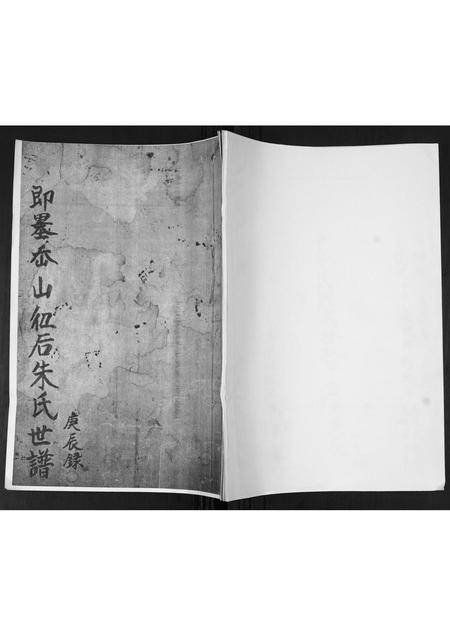 即墨岙山征后朱氏世譜
庚辰録